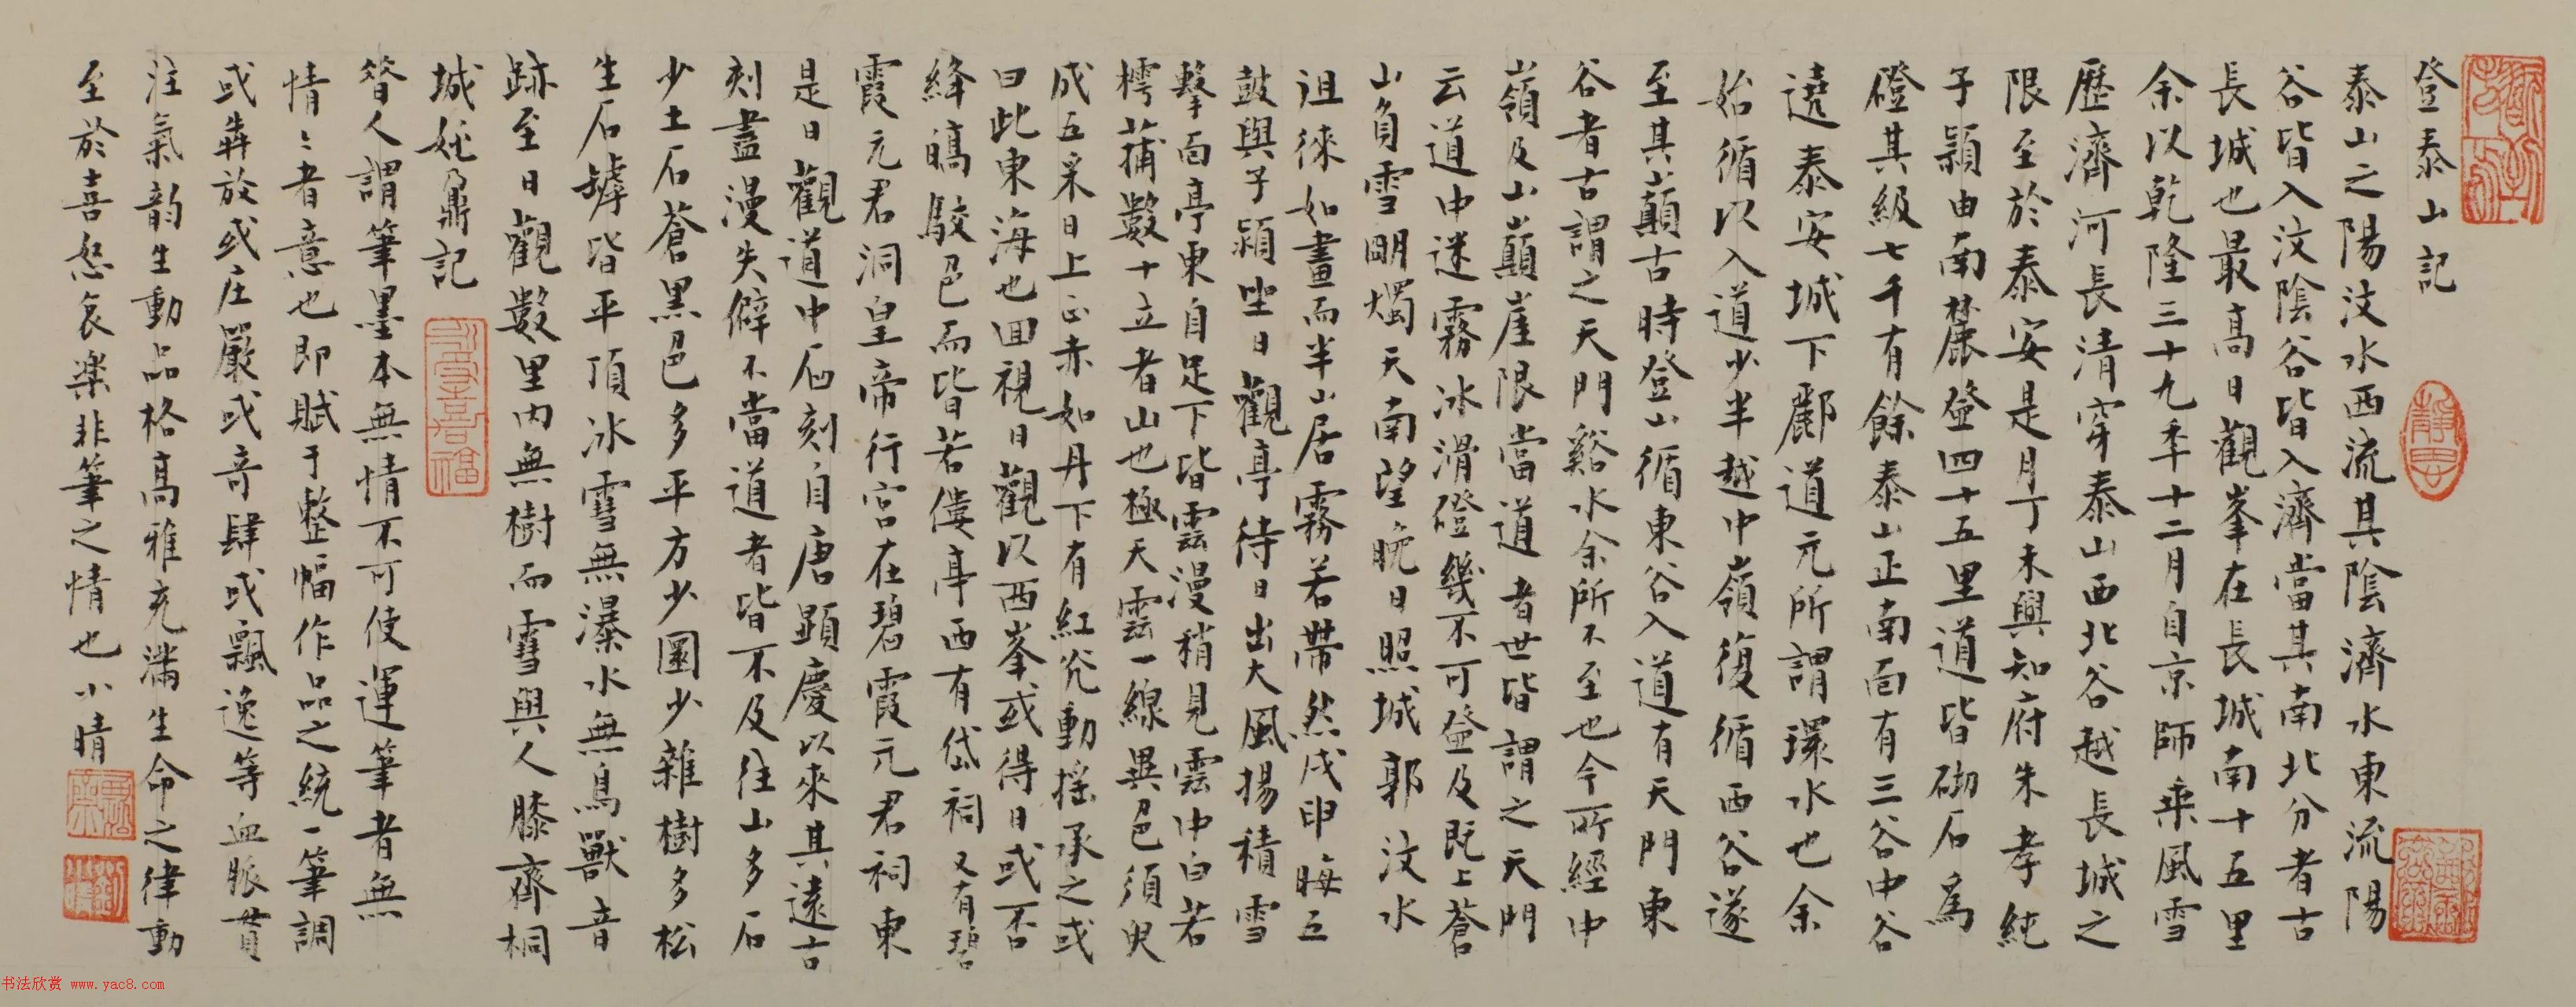 登泰山記
泰山之陽汶水西流其陰濟水東流陽
谷皆入汶陰谷皆入濟當其南北分者古
長城也最高日觀峯在長城南十五里
余以乾隆三十九年十二月自京師乘風雪
歷濟河長清穿泰山西北谷越長城之
限至於泰安是月丁未與知府朱孝純
子潁由南麓登四十五里道皆砌石為
磴其級七千有餘泰山正南面有三谷中谷
遶泰安城下酈道元所謂環水也余
始循以入道少半越中嶺復循西谷遂
至其巔古時登山循東谷入道有天門東
谷者古謂之天門谿水余所不至也今所經中
嶺及山巔崖限當道者世皆謂之天門
云道中迷霧冰滑磴幾不可登及既上蒼
山負雪明燭天南望晚日照城郭汶水
徂徠如畫而半山居霧若帶然戊申晦五
鼓與子潁坐日觀亭待日出大風揚積雪
擊面亭東自足下皆雲漫稍見雲中白若
樗蒱數十立者山也極天雲一線異色須臾
成五采日上正赤如丹下有紅光動搖承之或
曰此東海也回視日觀以西峯或得日或否
絳皜駁色而皆若僂亭西有岱祠又有碧
霞元君洞皇帝行宮在碧霞元君祠東
是日觀道中石刻自唐顯慶以來其遠古
刻盡漫失僻不當道者皆不及往山多石
少土石蒼黑色多平方少圜少雜樹多松
生石罅皆平頂冰雪無瀑水無鳥獸音
跡至日觀數里內無樹而雪與人膝齊桐
城姚鼐記
昝人謂筆墨本無情不可使運筆者無
情情者意也即賦于整幅作品之統一筆調
或犇放或庄嚴或奇肆或飄逸等血脈貫
注氣韵生動品格高雅充滿生命之律動
至於喜怒哀樂非筆之情也小晴
靜雲
書法欣赏 www.yac8.com